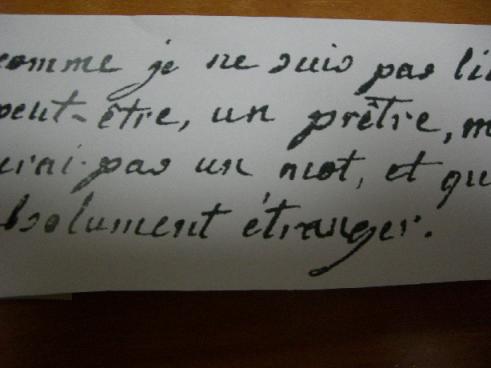 comme je ne suis pas li
peut-être, un prêtre, m
urai pas un mot, et qu
bsolument étranger.